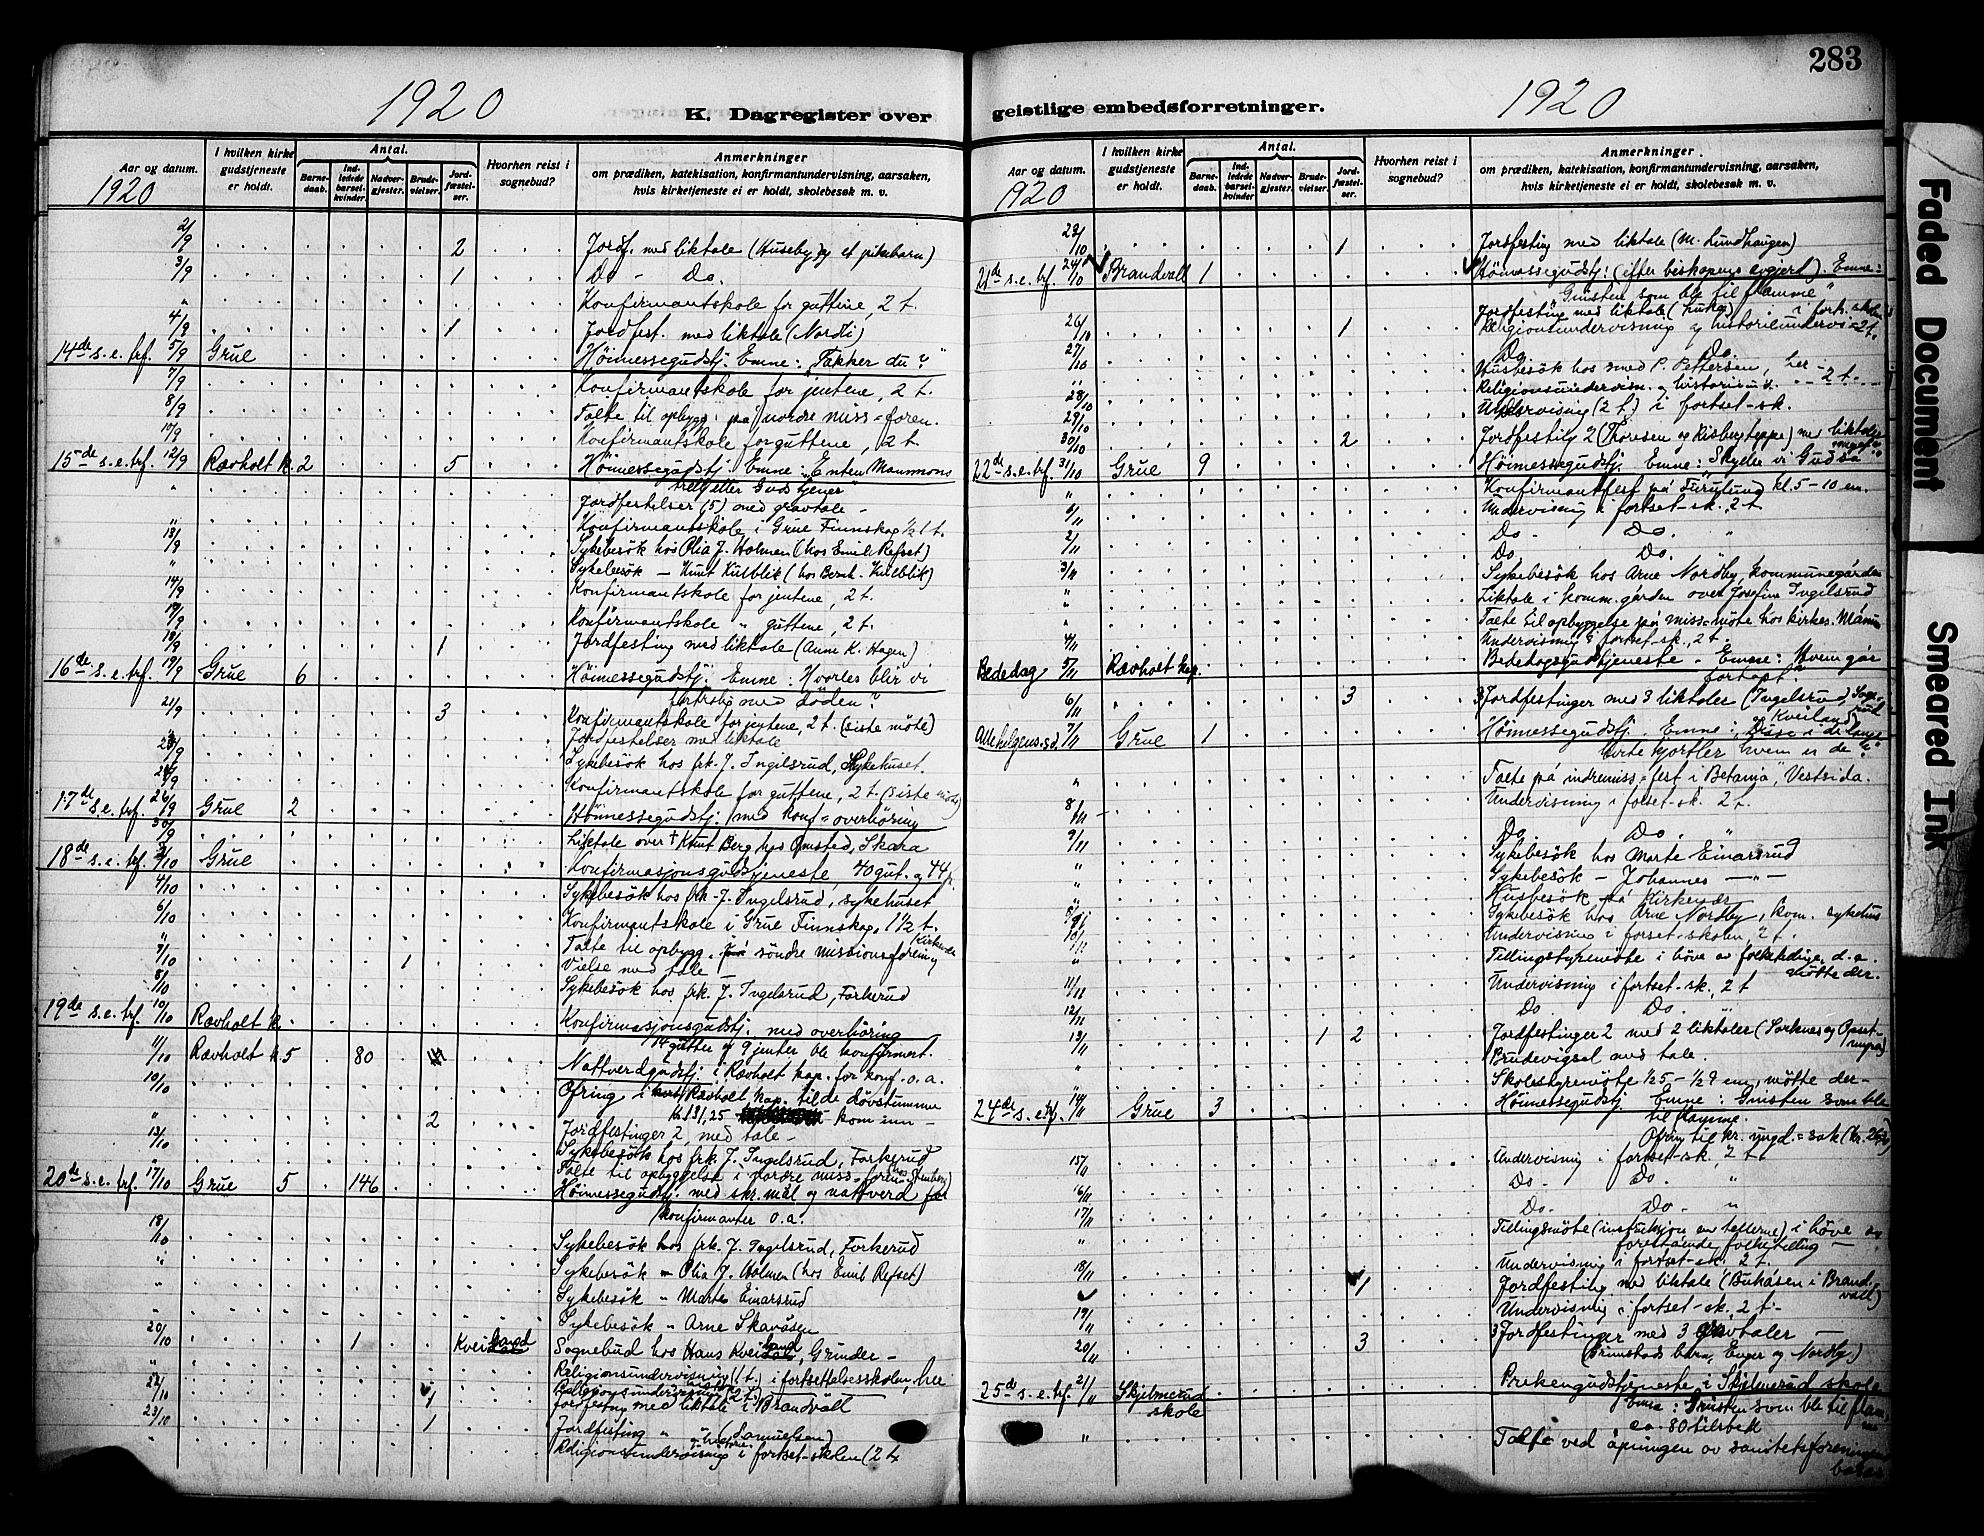 283
1920
K. Dagregister over
geistlige embedsforretninger.
1920
Aar og datum.
1920
I hvilken kirke gudstjeneste er holdt.
Antal.
Barnedaab.
Indledede barselkvinder.
Nadvergjester.
Brudevielser.
Jordfæstelser.
Hvorhen reist i sognebud?
Anmerkninger
om prædiken, katekisation, konfirmantundervisning, aarsaken,
hvis kirketjeneste ei er holdt, skolebesøk m. v.
2/9 2 Jordf. med liktale (Huseby og et pikebarn)
3/9 1 Do - Do.
" Konfirmantskole for guttene, 2 t.
4/9 1 Jordfest. med liktale (Nordli)
14de s.e.trf. 5/9 Grue Höimessegudstj. Emne: "Takker du?"
7/9 Konfirmantskole for jentene, 2 t.
8/9 Talte til opbygg. på nordre miss=foren.
10/9 Konfirmantskole for guttene, 2 t.
15de s.e.trf. 12/9 Ravholt k. 2 5 Höimessegudstj. Emne: "Enten Mammons
trell etter Guds tjener"
" Jordfestelser (5) med gravtale -
" Konfirmantskole i Grue Finnskog 1/2 1 t.
13/9 Sykebesök hos Olia J. Holmen (hos Emil Refset)
" Sykebesök — Knut Kulblik (hos Bernh. Kulblik)
14/9 Konfirmantskole for jentene, 2 t.
17/9 Konfirmantskole " guttene, 2 t.
18/9 1 Jordfesting med liktale (Anne K. Hagen)
16de s.e.trf. 19/9 Grue 6 Höimessegudstj. Emne: Hvorles blir vi
fortrolig med döden?
21/9 3 Konfirmantskole for jentene, 2 t. (siste möte)
Jordfestelser med liktale
23/9 Sykebesök hos frk. J. Ingelsrud, Sykehuset.
24/9 Konfirmantskole for guttene, 2 t. (siste möte)
17de s.e.trf. 26/9 Grue 2 Höimessegudstj. med konf=overhöring
30/9 Liktale over † Knut Berg hos Omsted, Skara
18de s.e.trf. 3/10 Grue Konfirmasjonsgudstjeneste, 40 gut. og 44 j.
4/10 Sykebesök hos frk. J. Ingelsrud, sykehuset
6/10 Konfirmantskole i Grue Finnskog, 1 1/2 t.
" Talte til opbygg. på söndre missionsforening Kirkenær
7/10 1 Vielse med tale
8/10 Sykebesök hos frk. J. Ingelsrud, Forkerud
19de s.e.trf. 10/10 Ravholt k. Konfirmasjonsgudstj. med overhöring
14 gutter og 9 jenter ble konfirmert.
11/10 Ravholt k. 5 80 Nattverdgudstj. i Ravholt kap. for konf. o.a.
10/10 Ofring i Ravholt kap. til de dövstumme
kr. 131,25 kom inn -
" 2 Jordfestinger 2, med tale -
13/10 Sykebesök hos frk. J. Ingelsrud, Forkerud
Talte til opbyggelse i nordre miss=foren.
20de s.e.trf. 17/10 Grue 5 146 Höimessegudstj. med skr.mål og nattverd for
konfirmanter o.a.
18/10 Sykebesök hos frk. J. Ingelsrud, Forkerud
" Sykebesök " Olia J. Holmen (hos Emil Refset)
" Sykebesök " Marte Einarsrud
" Sykebesök " Arne Skavåsen
20/10 1 Kveiland Sognebud hos Hans Kveiland, Grinder -
" Religionsundervisning (1 t.) i fortsettelsesskolen, her
22/10 Religionsundervisning (2 t.)
1 Jordfesting med liktale i Brandvall
23/10 1 Jordfesting " " (Samuelsen)
Religionsundervisning i fortset-skolen (2 t.
Aar og datum.
1920
I hvilken kirke gudstjeneste er holdt.
Antal.
Barnedaab.
Indledede barselkvinder.
Nadvergjester.
Brudevielser.
Jordfæstelser.
Hvorhen reist i sognebud?
Anmerkninger.
om prædiken, katekisation, konfirmantundervisning, aarsaken,
hvis kirketjeneste ei er holdt, skolebesøk m. v.
23/10 1 Jordfesting med liktale (M. Lundhaugen)
21de s.e.trf. 24/10 Brandvall 1 Höimessegudstj. (efter biskopens avgjerd). Emne:
"Gnisten som ble til flamme"
26/10 1 Jordfesting med liktale
Religionsundervisning og historieundervis=2 t.
27/10 Do Do.
" Husbesök hos smed P. Pettersen, her -
28/10 Religionsundervisn. og historieu. - 2 t. -
29/10 Undervisning (2 t.) i fortset-sk.
30/10 2 Jordfesting 2 (Thoresen og Risbergseppe) med liktale
22de s.e.trf. 31/10 Grue 9 Höimessegudstj. Emne: Skylder vi Gud så
" Konfirmantfest på Furulund kl. 5-10 em.
Undervisning i fortset-sk. 2 t
2/11 Do - Do. "
Do. Do.
3/11 Sykebesök hos Arne Nordby, kommunegården
" Liktale i komm.gården over Josefine Ingelsrud
" Talte til opbyggelse på miss=möte hos kirkes.
4/11 Undervisning i fortset-sk., 2 t.
Bededag 5/11 Ravholt kap. Bededagsgudstjeneste. Emne: Hvem går
fortapt?
6/11 3 3 Jordfestinger med 3 liktaler (Ingelsrud,
Kveiland)
Allehelgens.sd. 7/11 Grue 1 Höimessegudstj. Emne: "Disse i de lange
hvite kjortler hvem er de?"
" Talte på indremiss=fest i "Betania", Vestsida.
8/11 - Undervisning i fotset-sk. 2 t.
9/11 Do. Do. "
" Sykebesök hos Marte Einarsrud
" Sykebesök - Johannes — " —
" Husbesök på Kirkenær
" Sykebesök hos Arne Nordby, kom. sykehus
10/11 Undervisning i forset-skolen, 2 t.
" Tellingstyremöte i höve av folketeljing, d.a.
mötte der.
11/11 Undervisning i fortset-sk., 2 t
12/11 Do Do. "
13/11 1 2 Jordfestinger 2 med 2 liktaler
Brudevigsel med tale.
" Skolestyremöte 1/2 5 - 1/2 9 em, mötte der -
24de s.e.trf. 14/11 Grue 3 Höimessegudstj. Emne: Gnisten som ble
til flamme.
Ofring til kr. ungd.=sak
15/11 Undervisning i fortset-sk., 2 t
16/11 Do - Do. "
17/11 Do - Do - "
" Tellingsmöte (instruksjon av tellerne) i höve av
forestående folketelling -
18/11 Undervisning i fortset-sk. 2 t.
1 Jordfesting med liktale (Buhåsen i Brandvall)
19/11 Undervisning i fortset-sk. 2 t.
20/11 3 3 Jordfestinger med 3 gravtaler -
(Grinstads barn, Enger og Nordby)
25de s.e.trf. 21/11 Skjelmerud skole Prekengudstjeneste i Skjelmerud skole
Emne: Gnisten som ble til flamme
ca. 80 tilstede
" Talte ved åpningen av sanitetsforeningens
basar
Faded Document
Smeared Ink